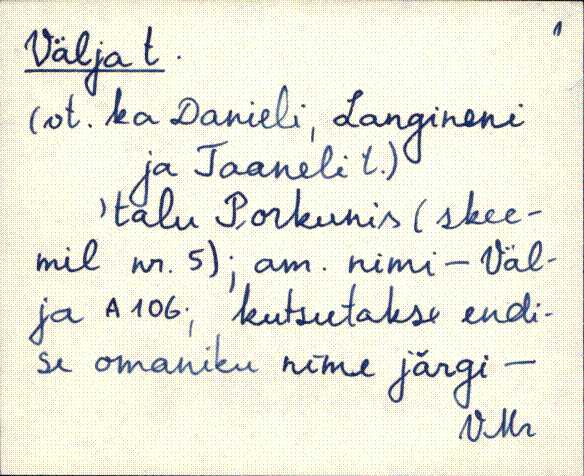 Välja t.
(vt. ka Danieli, Langineni
ja Taaneli t.)
'talu Porkunis (skee-
mil nr. 5); am. nimi – Väl-
ja A 106; kutsutakse endi-
se omaniku nime järgi –
VMr